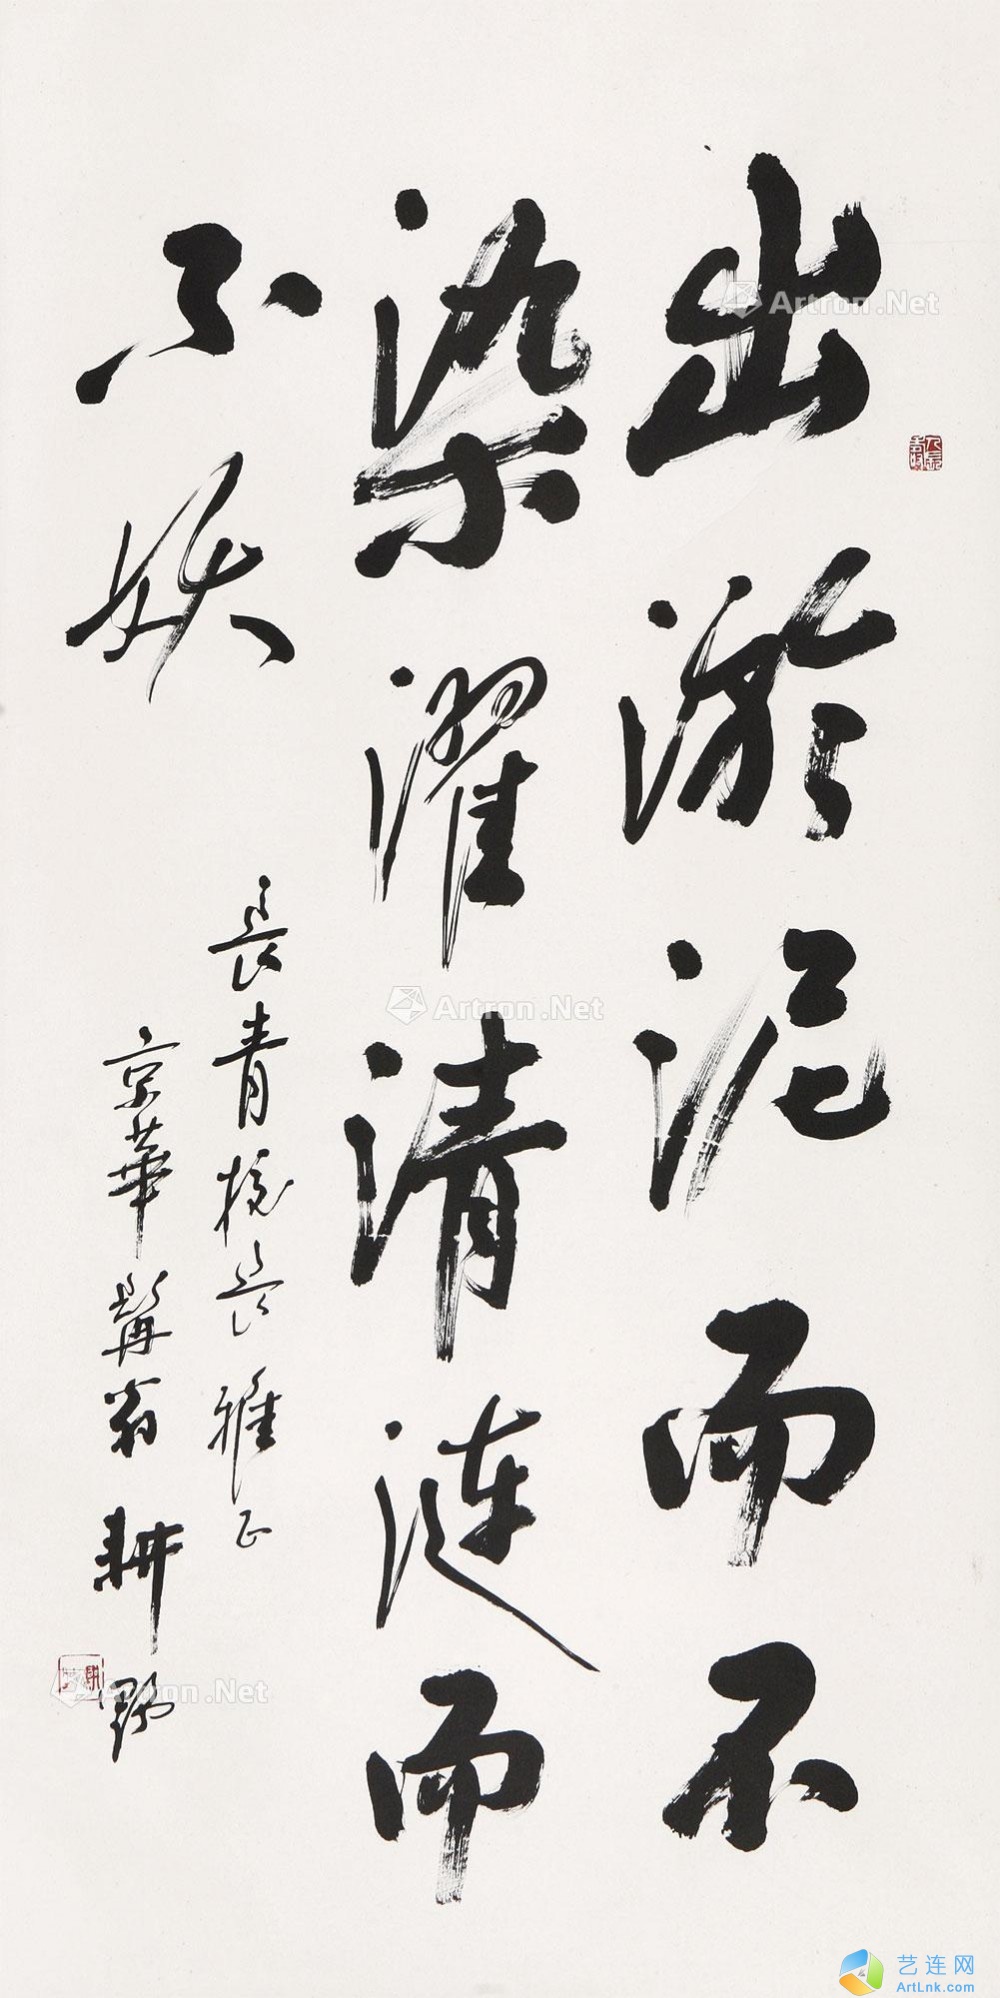 出淤泥而不
染濯清涟而
不妖
長青校長雅正
京華髯翁耕野
Artron.Net
Artron.Net
Artron.Net
艺连网
ArtLnk.com